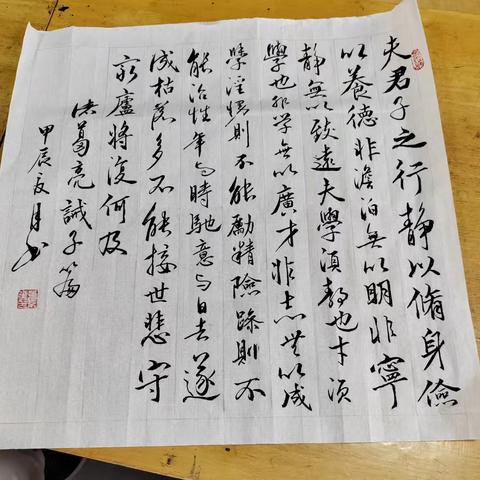 夫君子之行靜以脩身儉
以養德非澹泊無以明非寧
靜無以致遠夫學須靜也才須
學也非学無以廣才非志無以成
學淫慢則不能勵精險躁則不
能治性年与時馳意与日去遂
成枯落多不能接世悲守
窮廬將復何及
诸葛亮誡子篇
甲辰夏月书